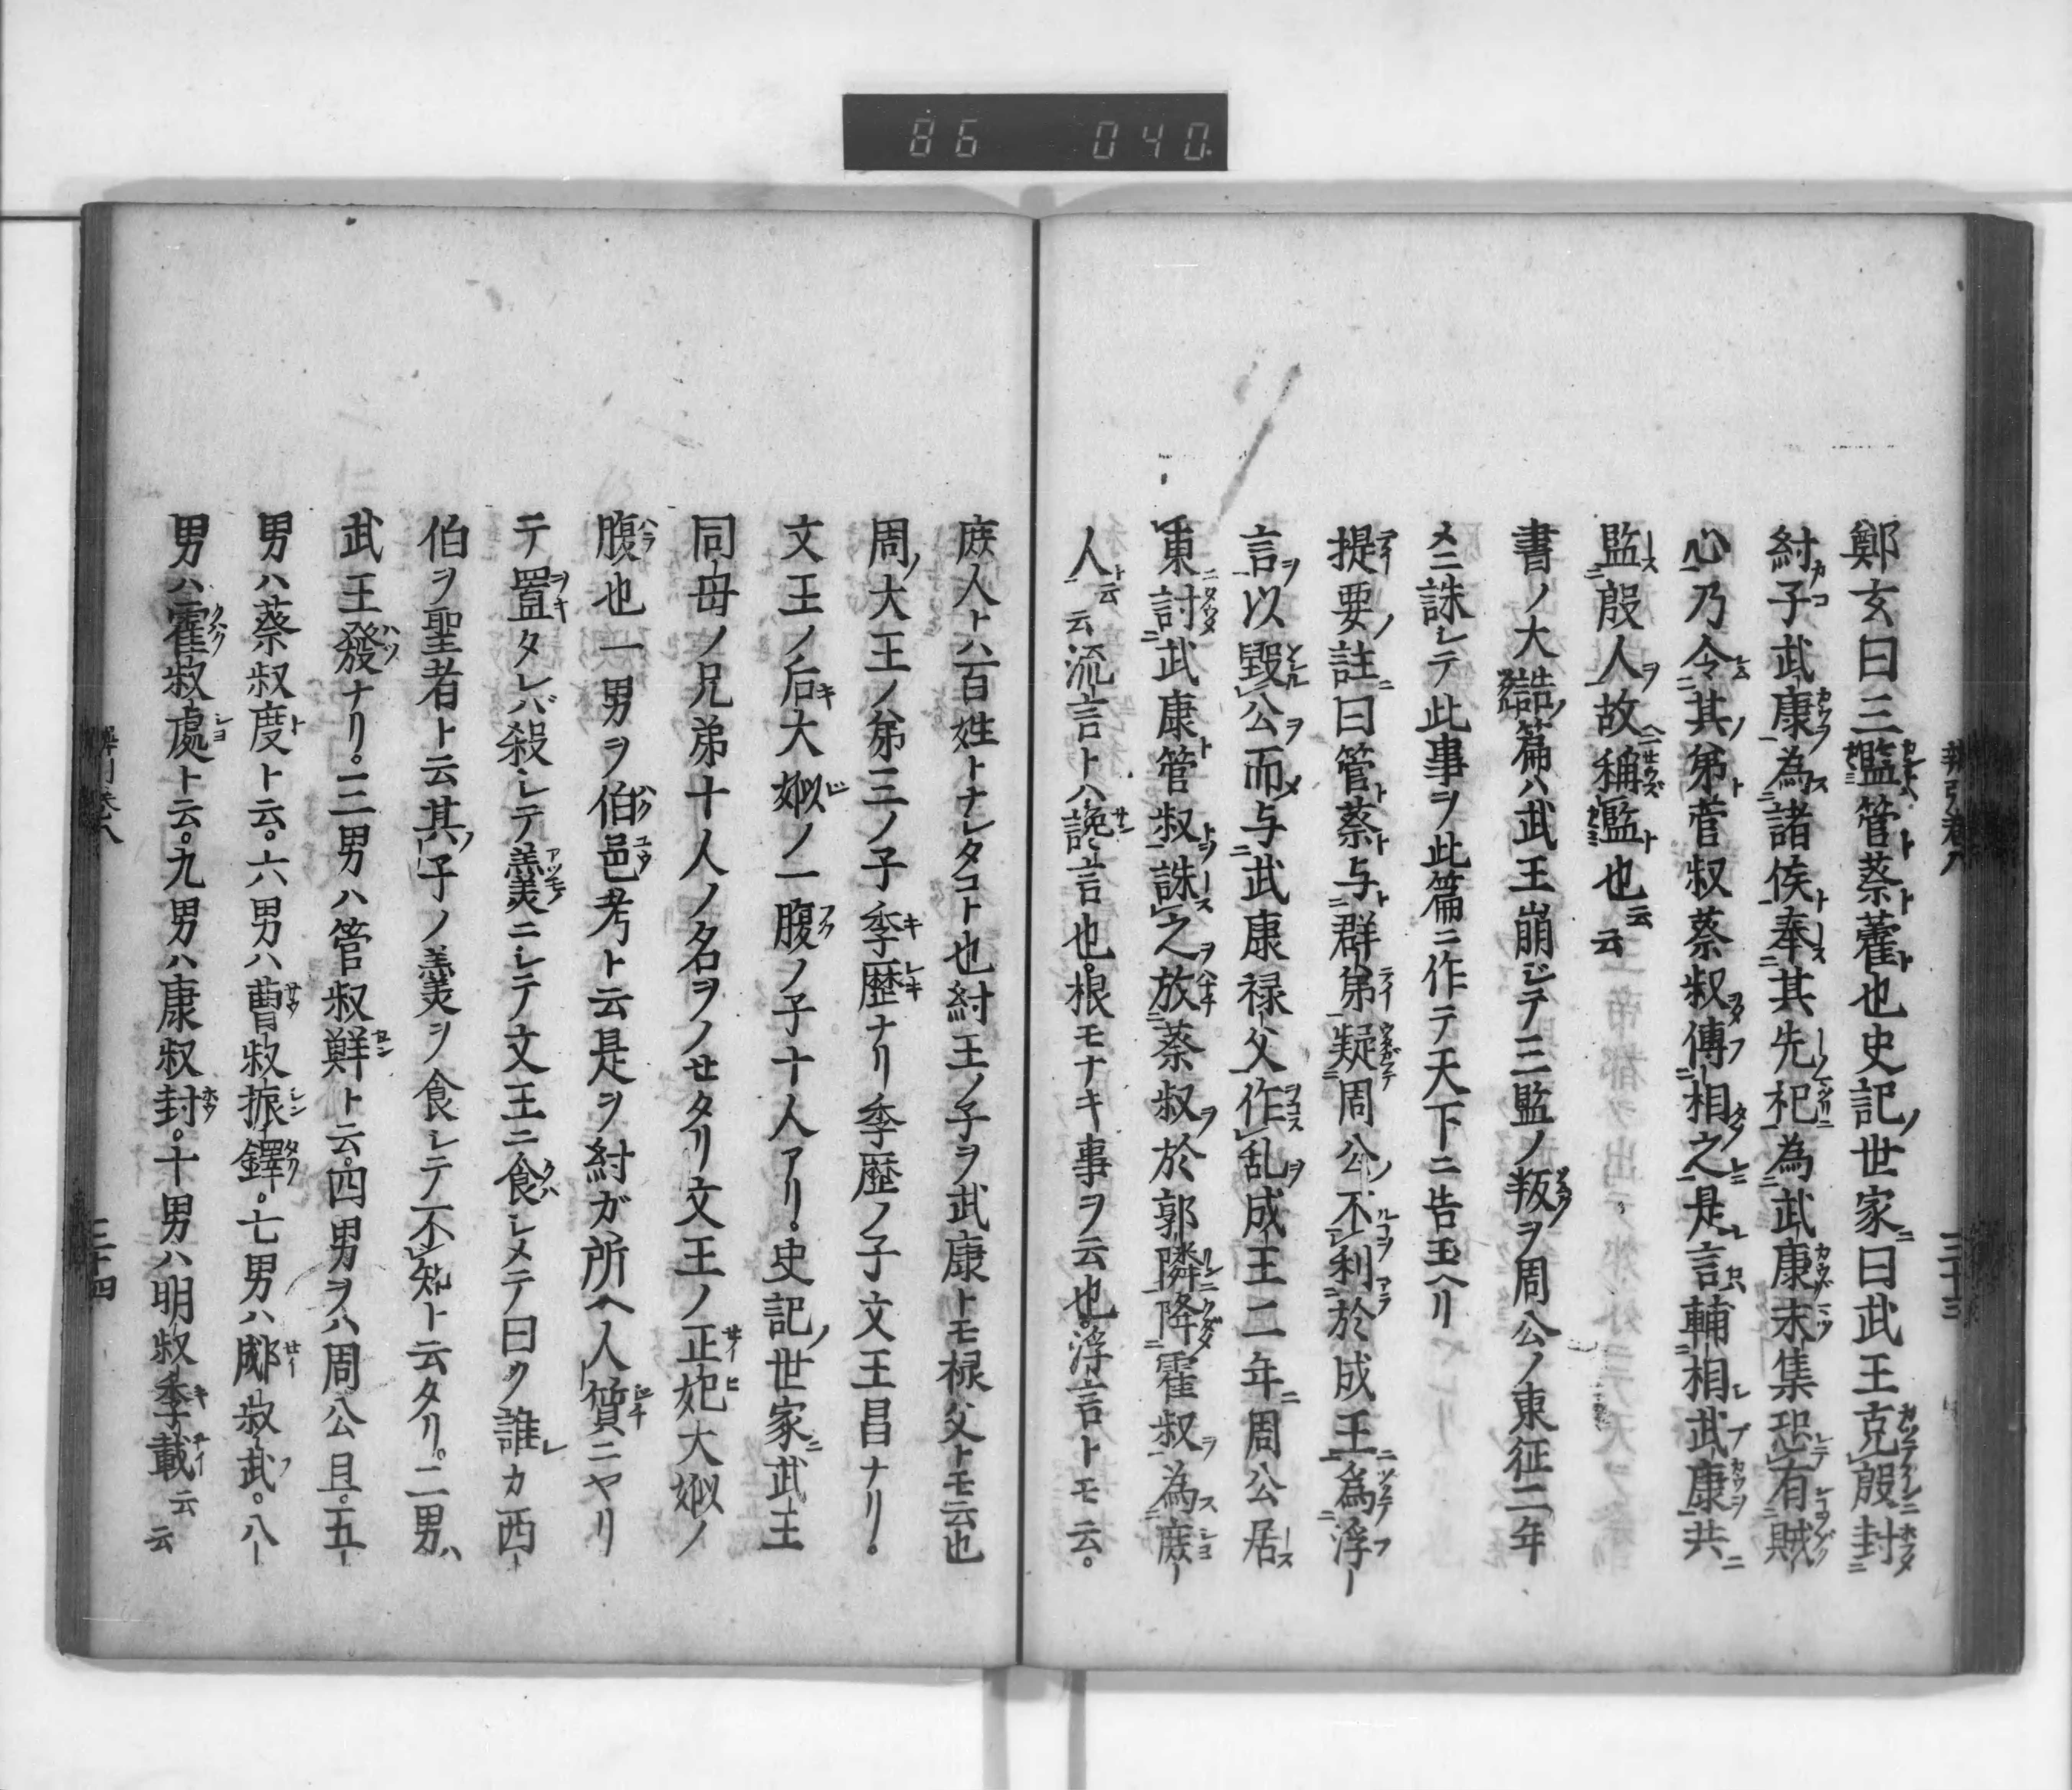 86 040
鄭玄曰三監管蔡藿也史記世家曰武王克殷封
紂子武康為諸侯奉其先祀為武康未集恐有賊
心乃令其弟菅叔蔡叔傅相之是言輔相武康共
監殷人故稱監也云云
書ノ大誥篇ハ武王崩ジテ三監ノ叛ヲ周公ノ東征二年
メニ誅レテ此事ヲ此篇ニ作テ天下ニ告玉ヘリ
提要ノ註曰管蔡与群弟疑周公不利於成王為浮
言以毀公而与武康禄父作乱成王二年周公居
東討武康管叔誅之放蔡叔於郭隣降霍叔為庻
人云云流言トハ讒言也。根モナキ事ヲ云也。浮言トモ云。
三十三
庻人トハ百姓トナレタコト也紂王ノ子ヲ武康トモ禄父トモ云也
周ノ大王ノ第三ノ子季歴ナリ季歴ノ子文王昌ナリ。
文王ノ后大姒ノ一腹ノ子十人アリ。史記ノ世家ニ武王
同母ノ兄弟十人ノ名ヲノセタリ文王ノ正妃大姒ノ
腹也一男ヲ伯邑考ト云是ヲ紂ガ所ヘ人質ニヤリ
テ置タレバ殺シテ羹ニシテ文王ニ食レメテ曰ク誰カ西
伯ヲ聖者ト云其子ノ羹ヲ食レテ不知ト云タリ。二男ハ
武王發ナリ。三男ハ管叔鮮ト云。四男ヲハ周公旦。五
男ハ蔡叔度ト云。六男ハ曹叔振鐸。七男ハ郕叔武。八
男ハ霍叔處ト云。九男ハ康叔封。十男ハ明叔季載云云
三十四